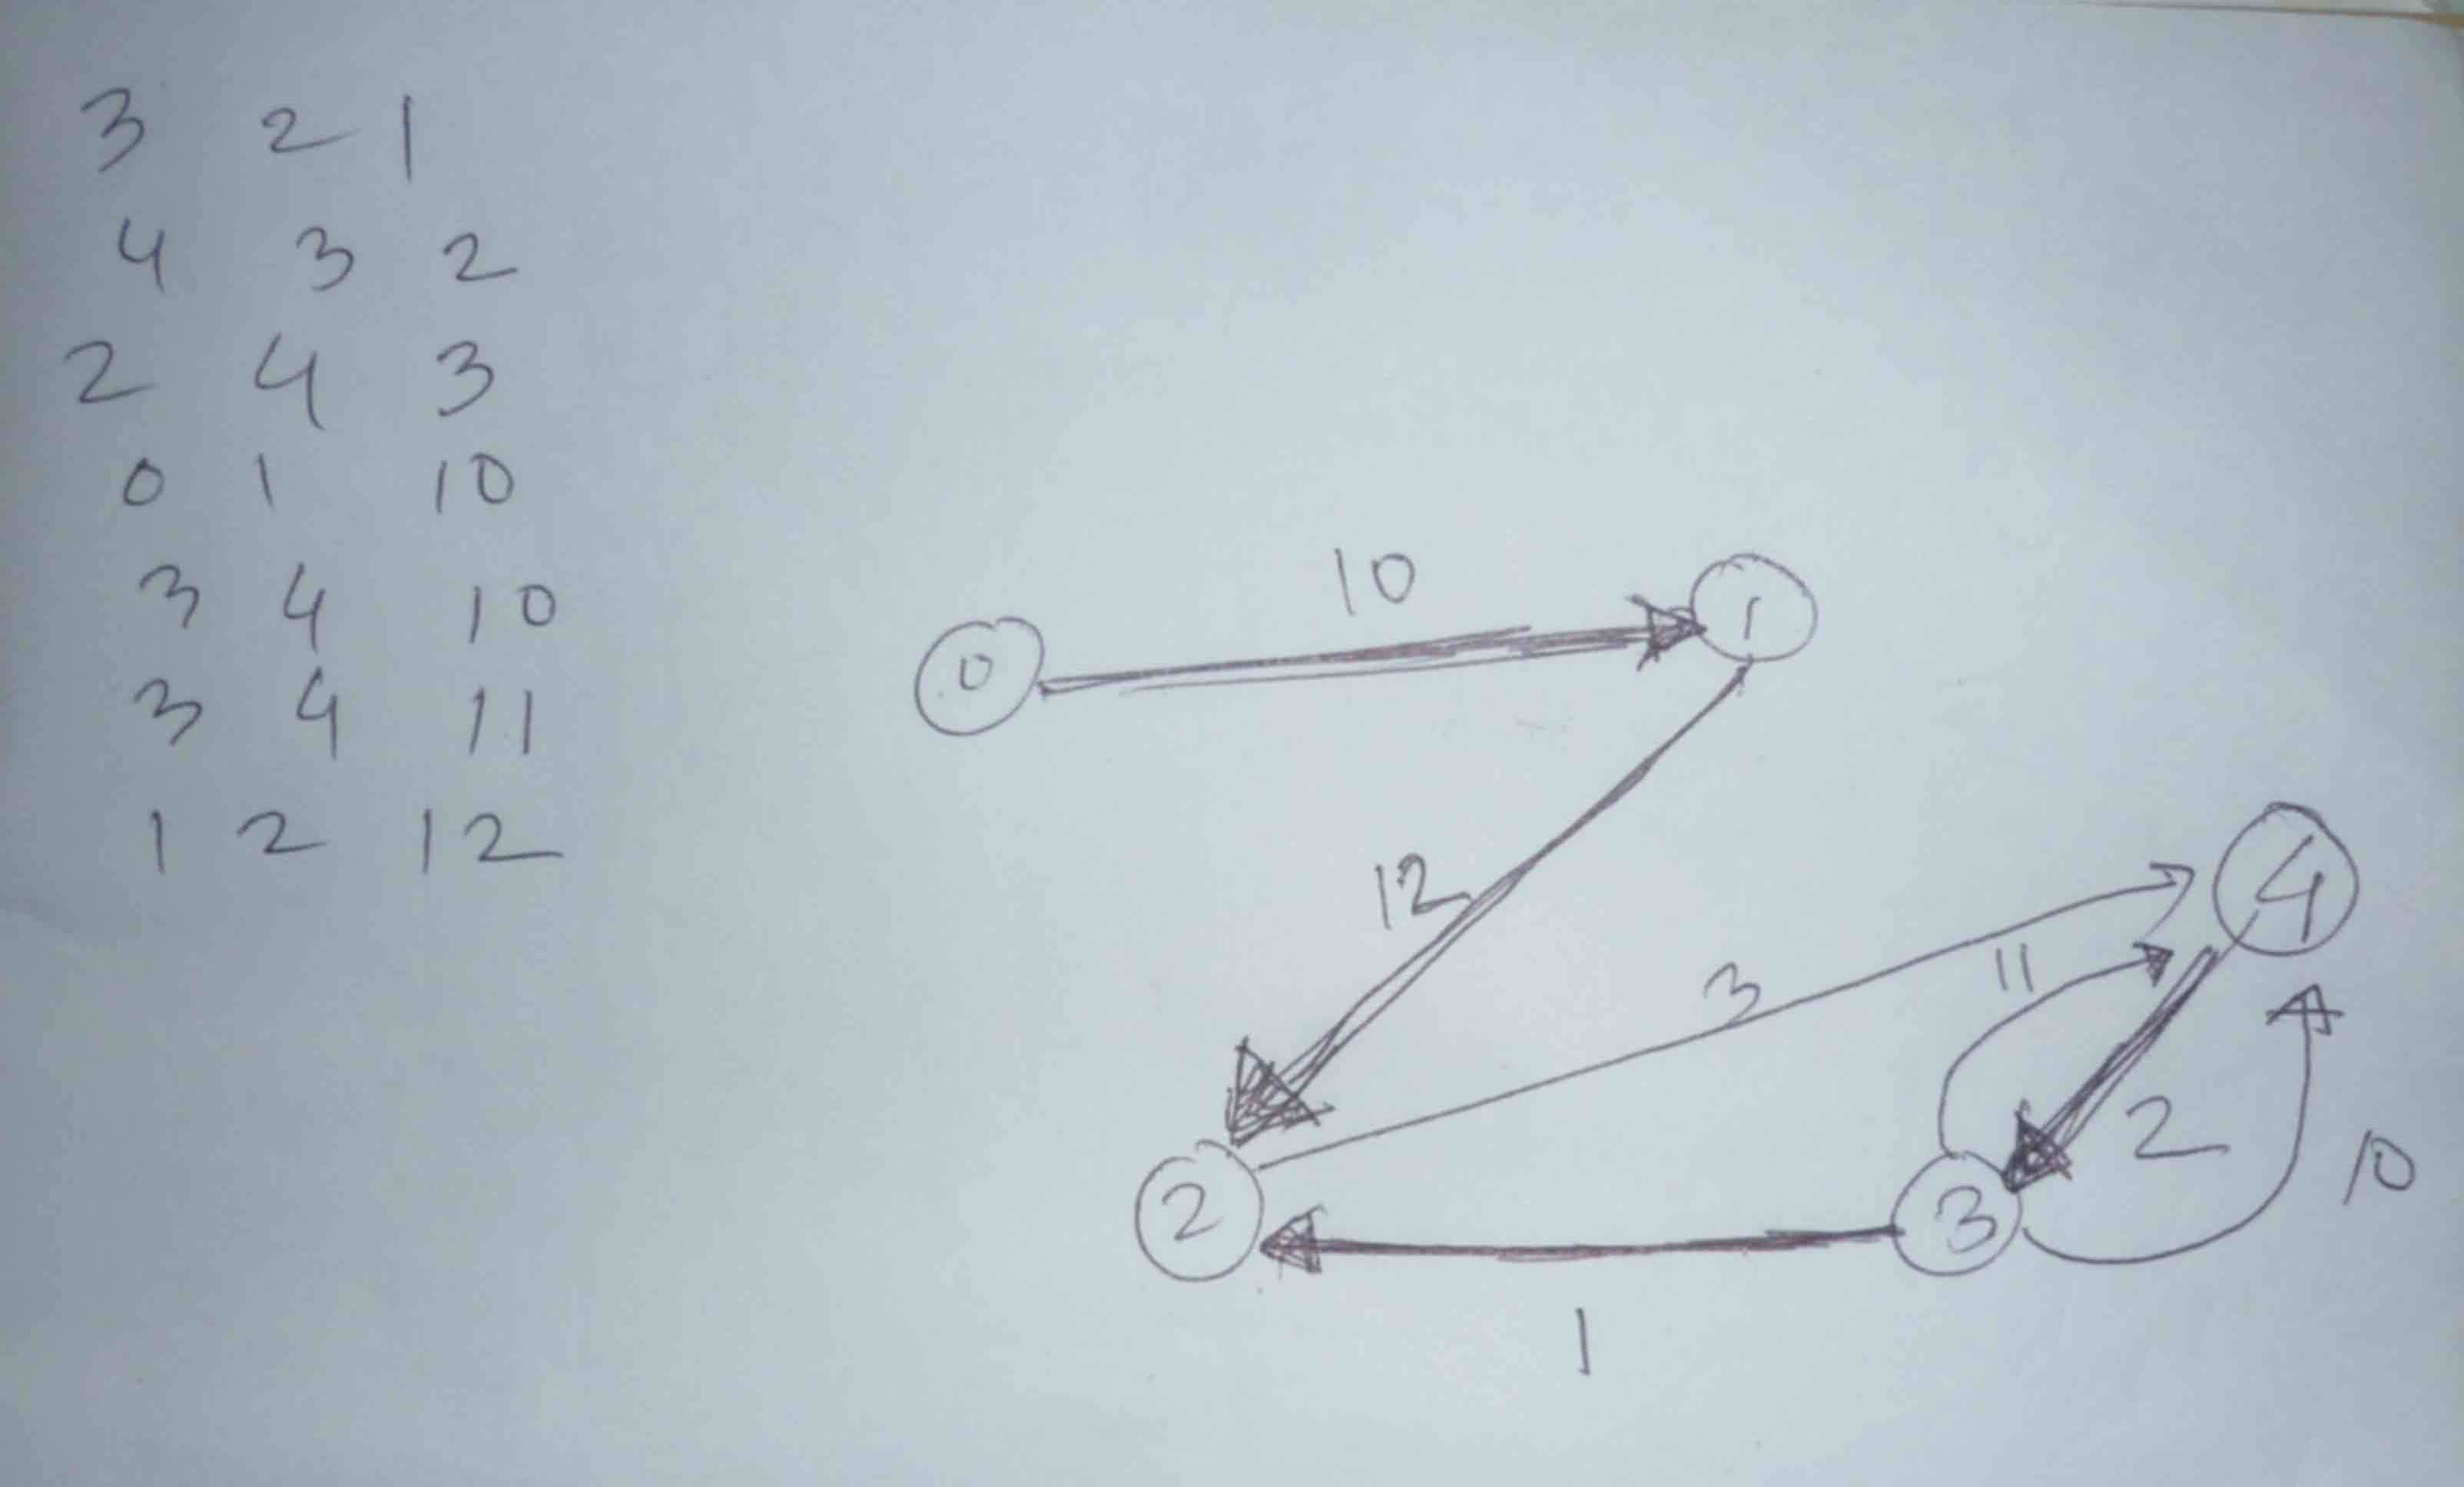 3 2 1
4 3 2
2 4 3
0 1 10
3 4 10
3 4 11
1 2 12
10
0
1
12
4
11
3
2
10
2
3
1